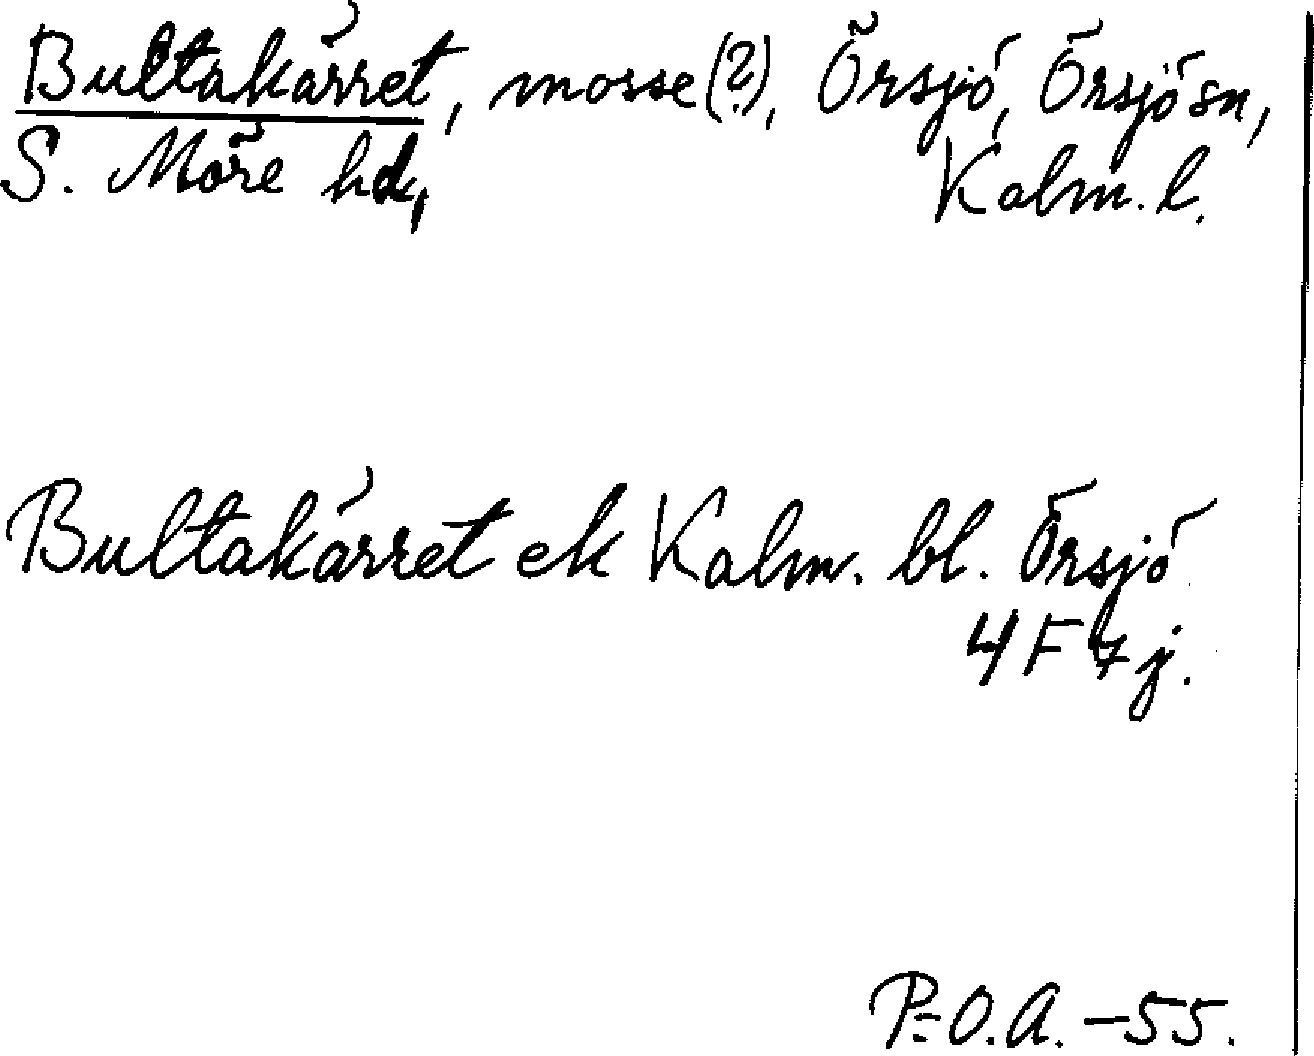 Bultakärret, mosse (?), Örsjö, Örsjö sn,
S. Möre hd, Kalm. l.
Bultakärret ek Kalm. bl. Örsjö
4 F 7 j.
P-O.A. -55.